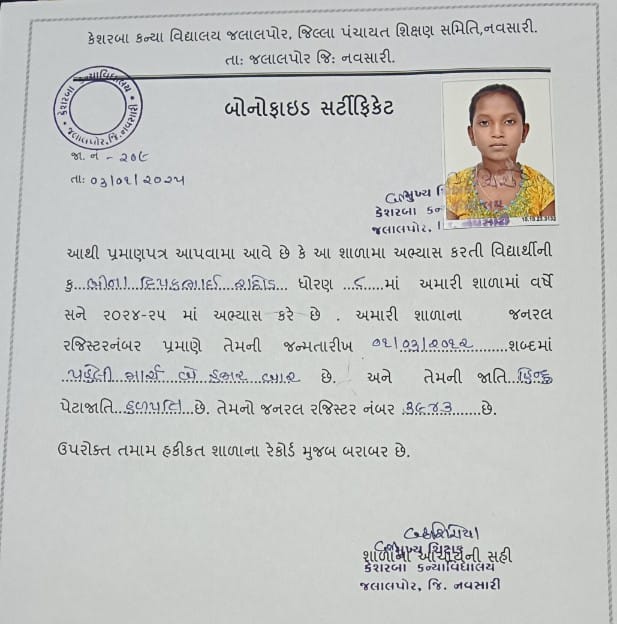 કેશરબા કન્યા વિદ્યાલય જલાલપોર, જિલ્લા પંચાયત શિક્ષણ સમિતિ,નવસારી.
તાઃ જલાલપોર જિઃ નવસારી.
બોનોફાઇડ સર્ટીફિકેટ
જા. ન - ૨૦૯
તાઃ ૦૩/૦૧/૨૦૨૫
મુખ્ય
કેશરબા
જલાલપોર,
આથી પ્રમાણપત્ર આપવામા આવે છે કે આ શાળામા અભ્યાસ કરતી વિદ્યાર્થીની
કુ... દિપકભાઈ રાઠોડ... ધોરણ ..૮.....માં અમારી શાળામાં વર્ષે
સને ૨૦૨૪-૨૫ માં અભ્યાસ કરે છે . અમારી શાળાના જનરલ
રજિસ્ટરનંબર પ્રમાણે તેમની જન્મતારીખ ૦૧/૦૩/૨૦૧૨.........શબ્દમાં
..પહેલી માર્ચ બે હજાર બાર છે. અને તેમની જાતિ..હિન્દુ
પેટાજાતિ..હળપતિ...છે. તેમનો જનરલ રજિસ્ટર નંબર .૩૮૪૩.......છે.
ઉપરોક્ત તમામ હકીકત શાળાના રેકોર્ડ મુજબ બરાબર છે.
મુખ્ય શિક્ષક
શાળાના આચાર્યની સહી
કેશરબા કન્યાવિદ્યાલય
જલાલપોર, જિ. નવસારી